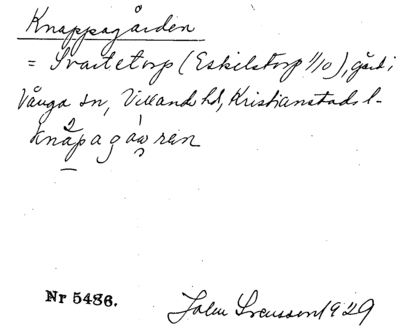 Knappagården
= Svartetorp (Eskilstorp 1/10), gård i
Vånga sn, Villands hd, Kristianstads l.
knapagåwren
Nr 5486.
John Svensson 1929